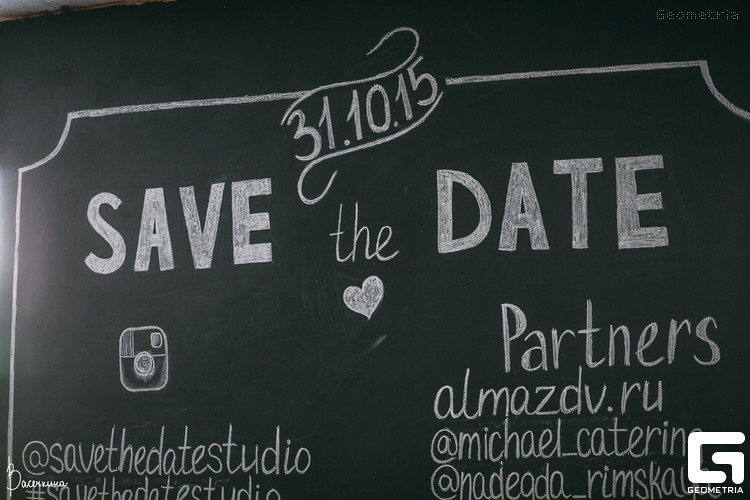 Geometria
31.10.15
SAVE the DATE
Partners
almazdv.ru
@savethedatestudio
@michael_caterin
#savethedatestudio
@nadegda_rimska
Васечкина
G
GEOMETRIA